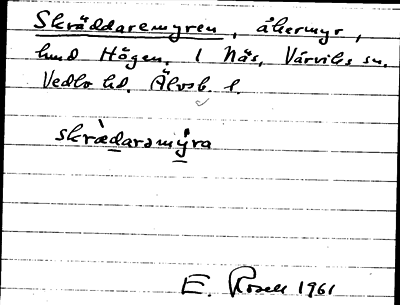 Skräddaremyren, åkermyr,
hmd Högen. 1 Näs, Värviks sn.
Vedbo hd. Älvsb. l.
skrædarəmýra
E. Rosell 1961